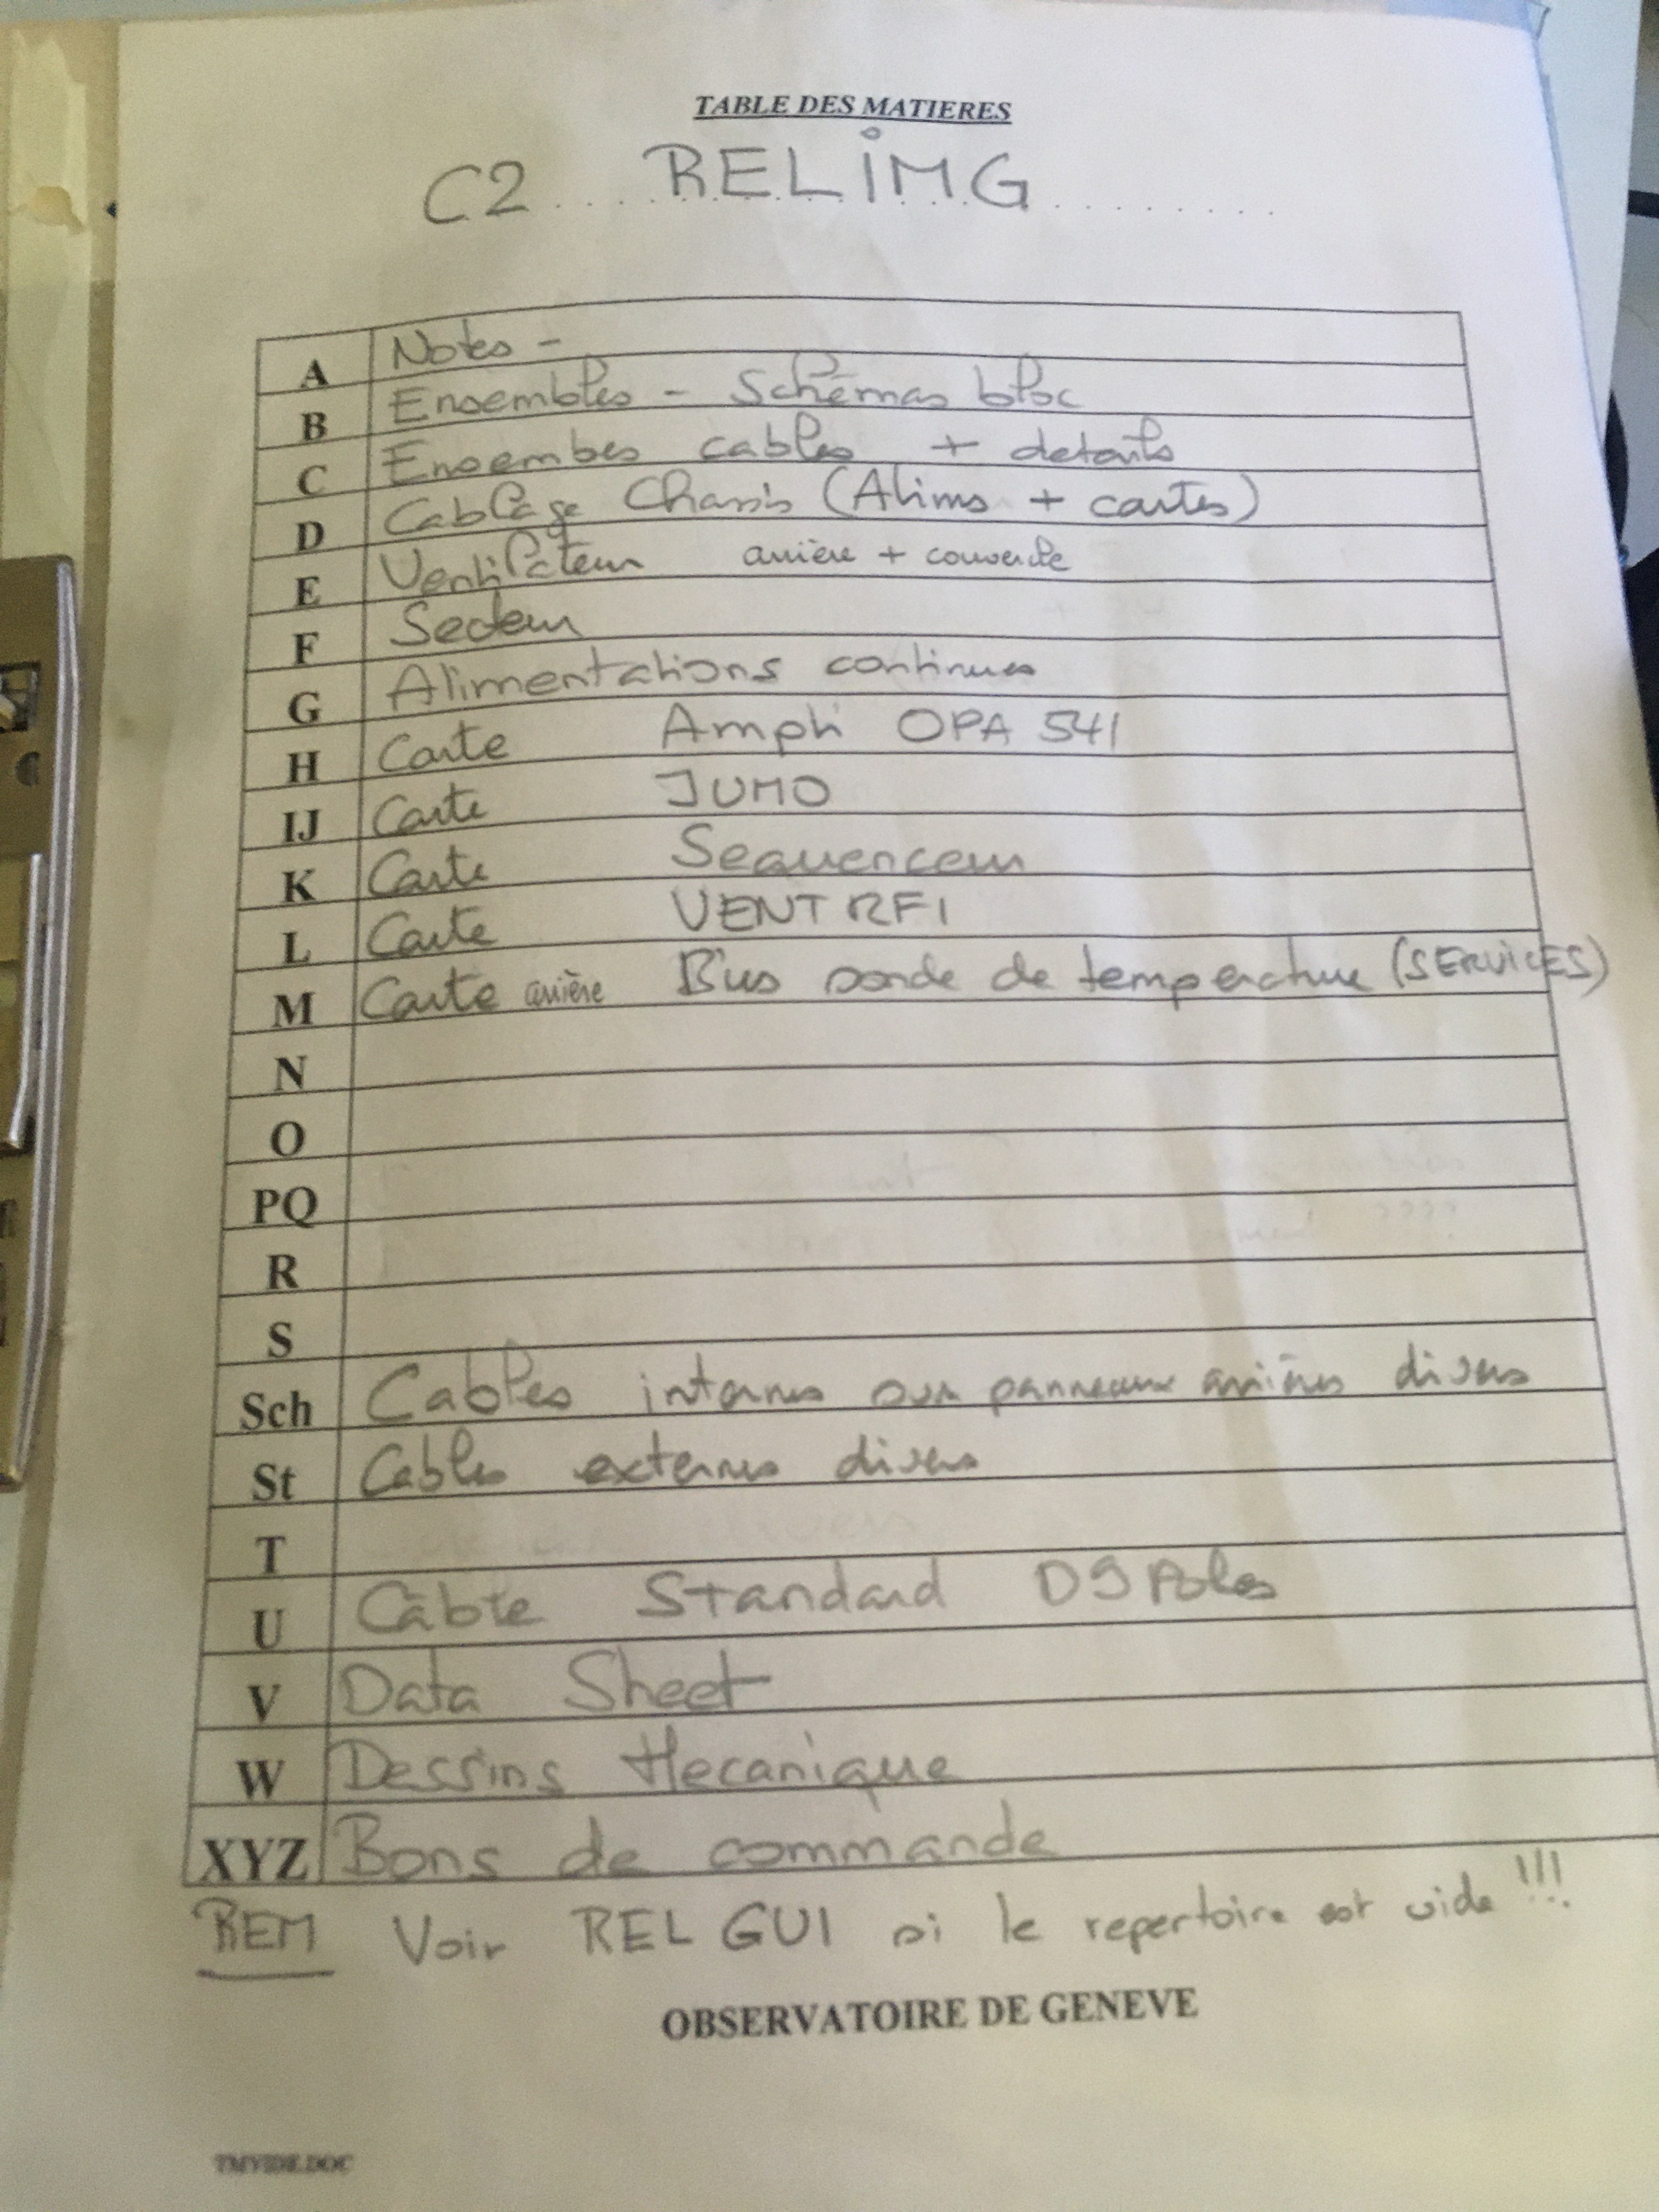 TABLE DES MATIERES
C2 RELIMG
A Notes -
B Ensembles - Schémas bloc
C Ensembes cables + details
D Cablage Chassis (Alims + cartes)
E Ventilateur arrière + couvercle
F Secteur
G Alimentations continues
H Carte Ampli OPA 541
IJ Carte JUMO
K Carte Sequenceur
L Carte VENT RFI
M Carte arrière Bus sonde de temperature (SERVICES)
N
O
PQ
R
S
Sch Cables internes sur panneaux arrières divers
St Cables externes divers
T
U Câble Standard D9 Poles
V Data Sheet
W Dessins Mecanique
XYZ Bons de commande
REM Voir REL GUI si le repertoire est vide !!!
OBSERVATOIRE DE GENEVE
TMVIDE.DOC